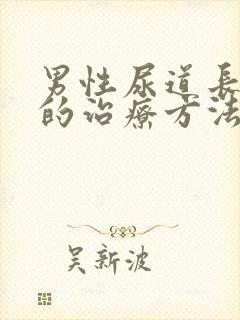 男性尿道長
的治療方法
吴新波